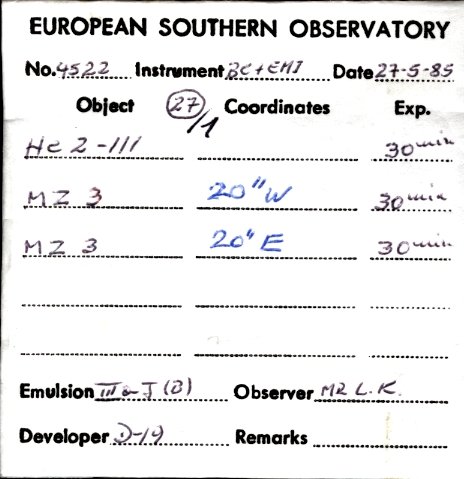 EUROPEAN SOUTHERN OBSERVATORY
No. 4522 Instrument BC+EMI Date 27-5-85
Object 27/1 Coordinates Exp.
He 2-111 30 min
MZ 3 20" W 30 min
MZ 3 20" E 30 min
Emulsion III a-J (B) Observer MR L.K.
Developer D-19 Remarks